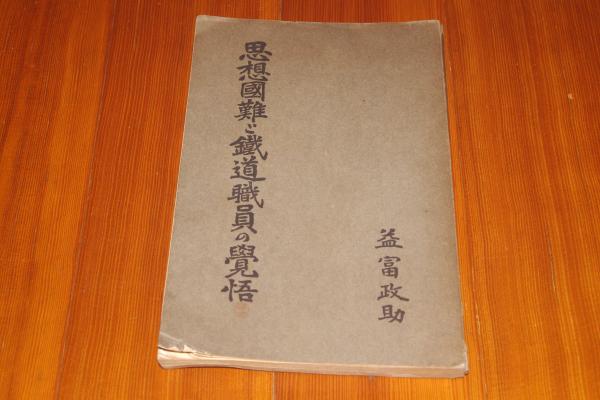 思想國難と鐵道職員の覺悟
益富政助